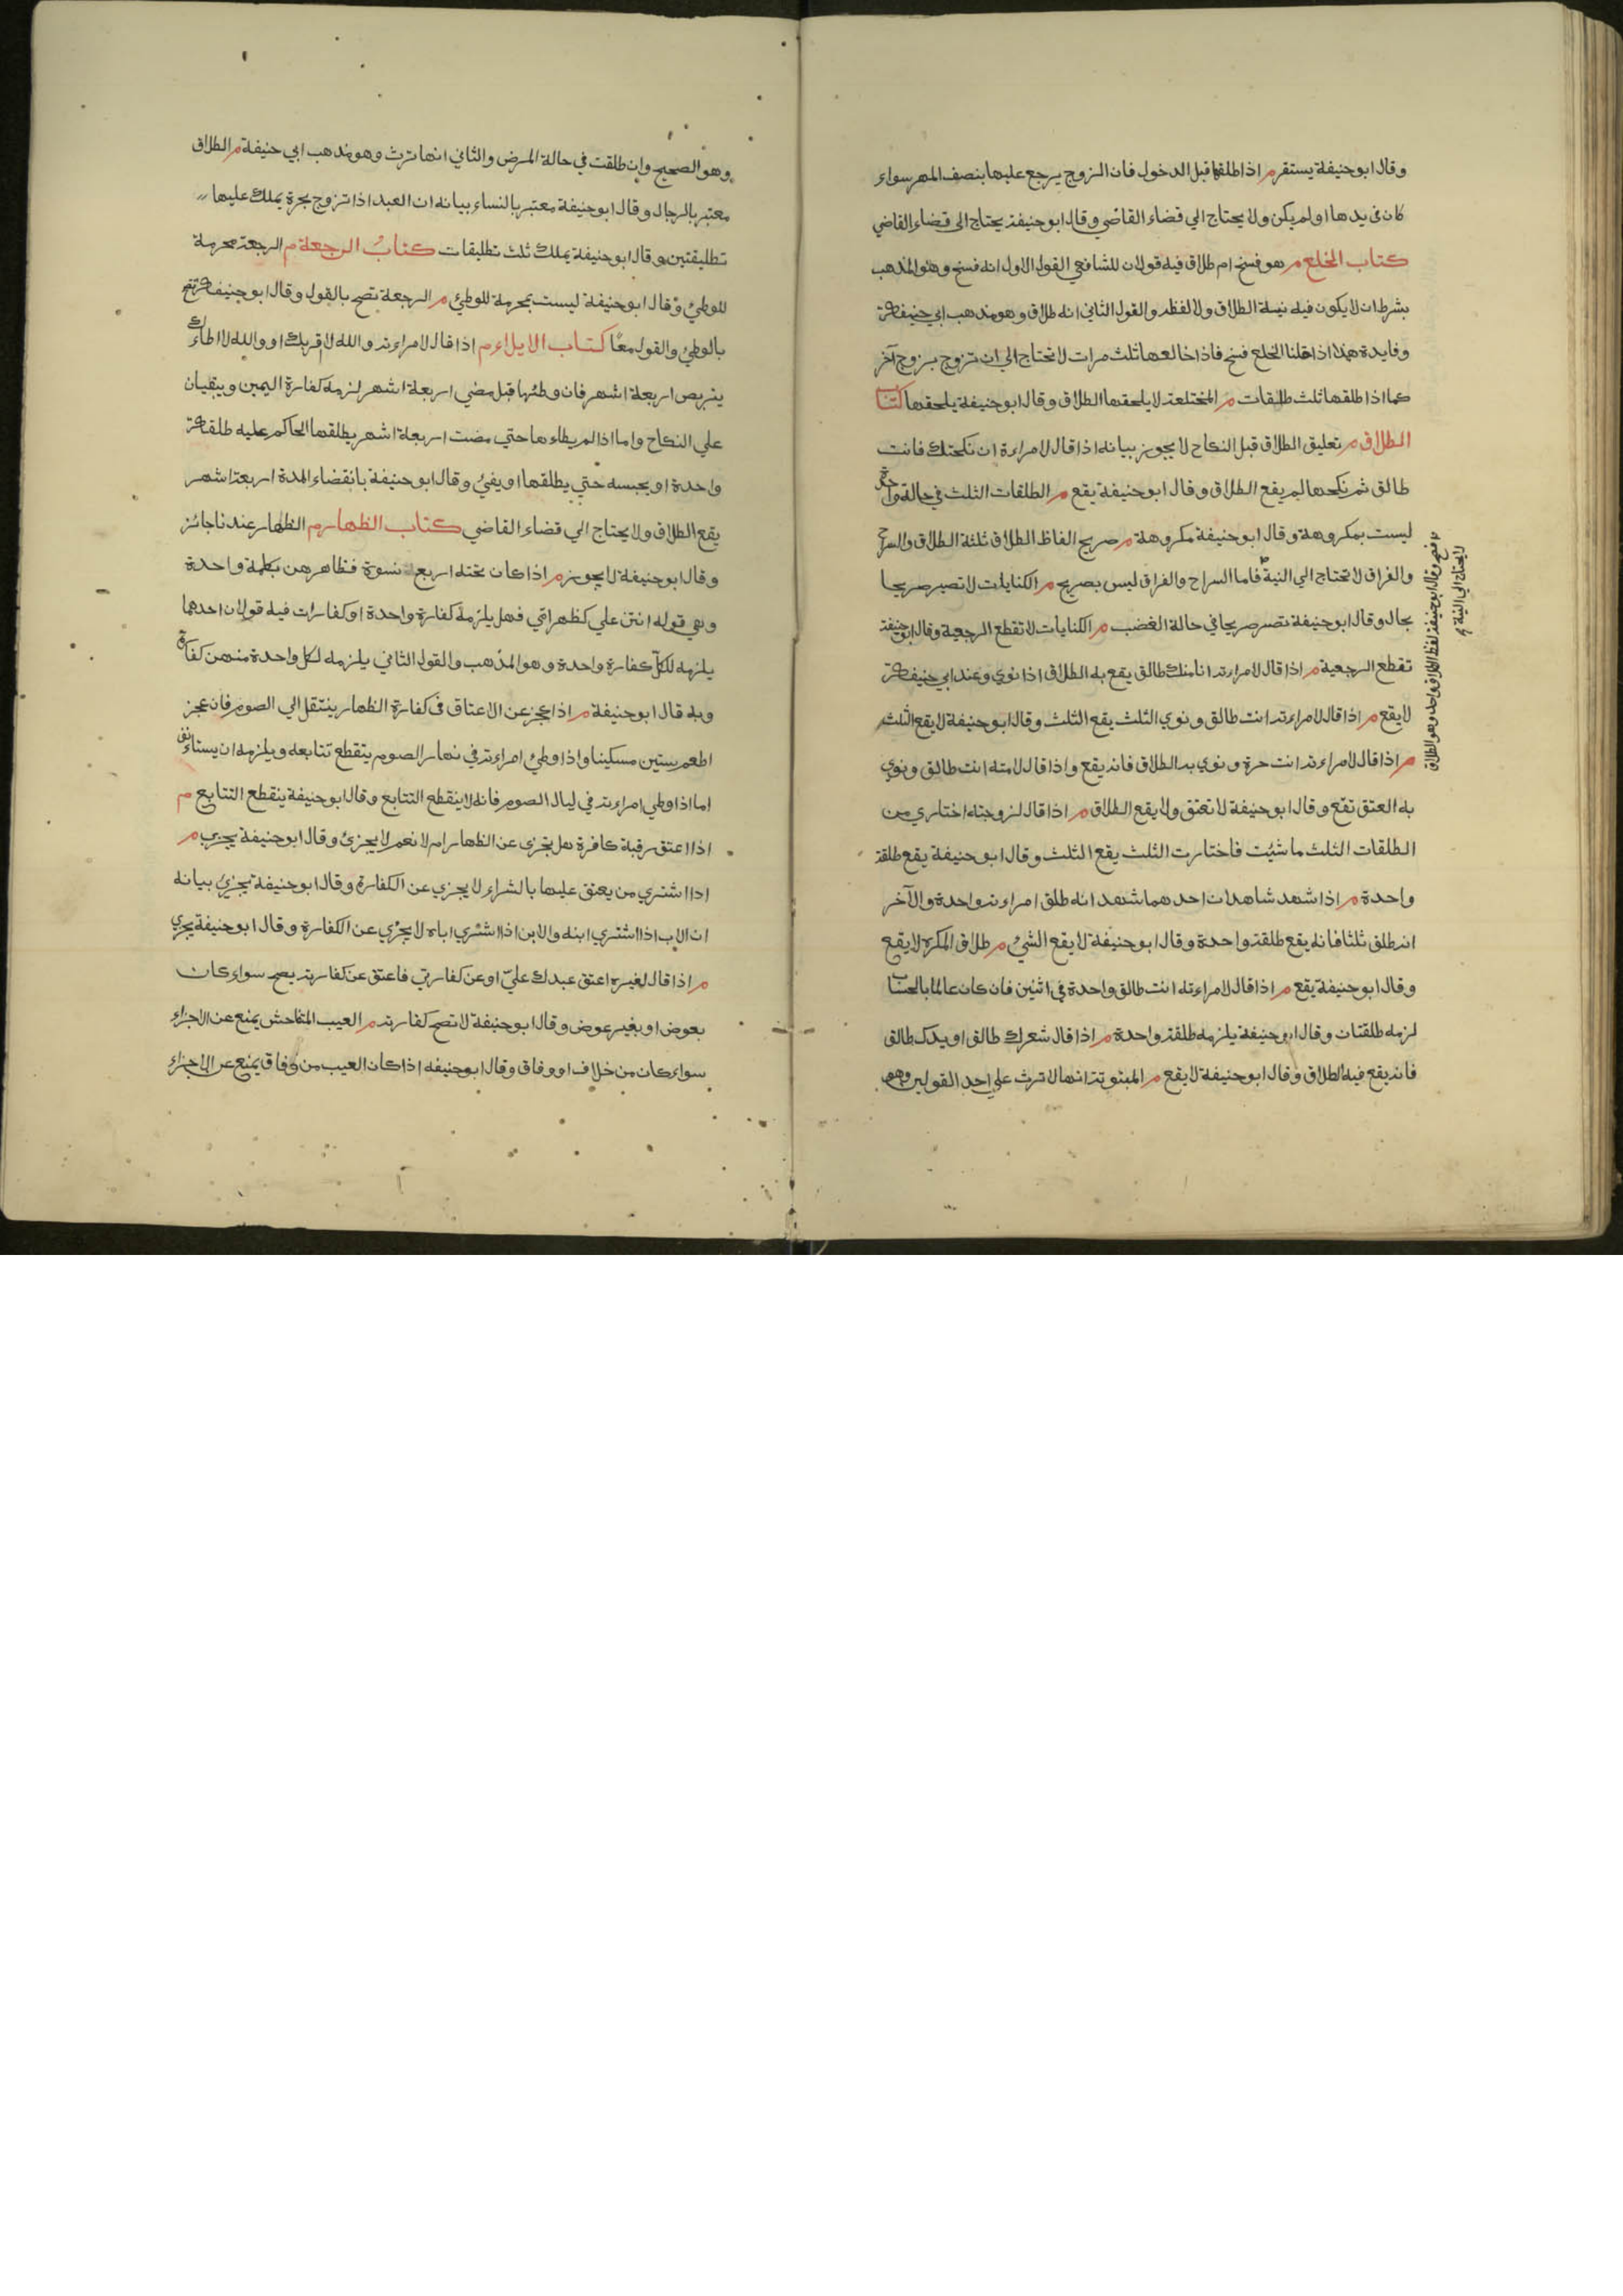 وقال ابوحنيفة يستقر م اذا طلقها قبل الدخول فان الزوج يرجع عليها بنصف المهر سواء
كان في يدها او لم يكن ولا يحتاج الي قضاء القاضي وقال ابوحنيفة يحتاج الى قضاء القاضي
كتاب الخلع م هو فسخ ام طلاق فيه قولان للشافعي القول الاول انه فسخ وهو المذهب
بشرط ان لا يكون فيه نية الطلاق ولا لفظه والقول الثاني انه طلاق وهو مذهب ابي حنيفة
وفايدة هذا اذا قلنا الخلع فسخ فاذا خالعها ثلث مرات لا تحتاج الي ان تزوج بزوج آخر
كما اذا طلقها ثلث طلقات م المختلعة لا يلحقها الطلاق وقال ابوحنيفة يلحقها كتاب
الطلاق م تعليق الطلاق قبل النكاح لا يجوز بيانه اذا قال لامراءة ان نكحتك فانت
طالق ثم نكحها لم يقع الطلاق وقال ابوحنيفة يقع م الطلقات الثلث في حالة واحدة
ليست بمكروهة وقال ابوحنيفة مكروهة م صريح الفاظ الطلاق ثلثة الطلاق والسراح
والفراق لا تحتاج الي النية فاما السراح والفراق ليس بصريح م الكنايات لا تصير صريحا
بحال وقال ابوحنيفة تصير صريحا في حالة الغضب م الكنايات لا تقطع الرجعية وقال ابوحنيفة
تقطع الرجعية م اذا قال لامراءته انا منك طالق يقع به الطلاق اذا نوي وعند ابي حنيفة
لا يقع م اذا قال لامراءته انت طالق ونوي الثلث يقع الثلث وقال ابوحنيفة لا يقع الثلث
م اذا قال لامراءته انت حرة ونوي به الطلاق فانه يقع واذا قال لامته انت طالق ونوي
به العتق تقع وقال ابوحنيفة لا تعتق ولا يقع الطلاق م اذا قال لزوجته اختاري من
الطلقات الثلث ما شئت فاختارت الثلث يقع الثلث وقال ابوحنيفة يقع طلقة
واحدة م اذا شهد شاهدان احدهما شهد انه طلق امراءته واحدة والآخر
انه طلق ثلثا فانه يقع طلقة واحدة وقال ابوحنيفة لا يقع الشيء م طلاق المكره لا يقع
وقال ابوحنيفة يقع م اذا قال لامراءته انت طالق واحدة في اثنين فان كان عالما بالحساب
لزمه طلقتان وقال ابوحنيفة يلزمه طلقة واحدة م اذا قال شعرك طالق او يدك طالق
فانه يقع فيه الطلاق وقال ابوحنيفة لا يقع م المبتوتة انها لا ترث علي احد القولين وهو
وقال ابوحنيفة لفظ الطلاق واحد وهو الطلاق
لا يحتاج الي النية
وهو الصحيح وان طلقت في حالة المرض والثاني انها ترث وهو مذهب ابي حنيفة م الطلاق
معتبر بالرجال وقال ابوحنيفة معتبر بالنساء بيانه ان العبد اذا تزوج بحرة يملك عليها
تطليقتين وقال ابوحنيفة يملك ثلث تطليقات كتاب الرجعة م الرجعة محرمة
للوطئ وقال ابوحنيفة ليست بمحرمة للوطئ م الرجعة تصح بالقول وقال ابوحنيفة تصح
بالوطئ والقول معًا كتاب الايلاء م اذا قال لامراءته والله لا قربك او والله لا اطاءك
يتربص اربعة اشهر فان وطئها قبل مضي اربعة اشهر لزمه كفارة اليمين ويبقيان
علي النكاح واما اذا لم يطاءها حتي مضت اربعة اشهر يطلقها الحاكم عليه طلقة
واحدة او يحبسه حتي يطلقها او يفئ وقال ابوحنيفة بانقضاء المدة اربعة اشهر
يقع الطلاق ولا يحتاج الي قضاء القاضي كتاب الظهار م الظهار عندنا جائز
وقال ابوحنيفة لا يجوز م اذا كان تحته اربع نسوة فظاهرهن بكلمة واحدة
وهي قوله انتن علي كظهر امي فهل يلزمه كفارة واحدة او كفارات فيه قولان احدهما
يلزمه للكل كفارة واحدة وهو المذهب والقول الثاني يلزمه لكل واحدة منهن كفارة
وبه قال ابوحنيفة م اذا عجز عن الاعتاق في كفارة الظهار ينتقل الي الصوم فان عجز
اطعم ستين مسكينا واذا وطئ امراءته في نهار الصوم ينقطع تتابعه ويلزمه ان يستاءنف
اما اذا وطي امراءته في ليال الصوم فانه لا ينقطع التتابع وقال ابوحنيفة ينقطع التتابع م
اذا اعتق رقبة كافرة هل تجزي عن الظهار ام لا نعم لا يجزئ وقال ابوحنيفة يجزي م
اذا اشتري من يعتق عليها بالشراء لا يجزي عن الكفارة وقال ابوحنيفة يجزئ بيانه
ان الاب اذا اشتري ابنه والابن اذا اشتري اباه لا يجزي عن الكفارة وقال ابوحنيفة يجزي
م اذا قال لغيره اعتق عبدك عليّ او عن كفارتي فاعتق عن كفارته يصح سواء كان
بعوض او بغير عوض وقال ابوحنيفة لا تصح كفارته م العيب المتفاحش يمنع عن الاجزاء
سواء كان من خلاف او وفاق وقال ابوحنيفه اذا كان العيب من وفاق يمنع عن الاجزاء